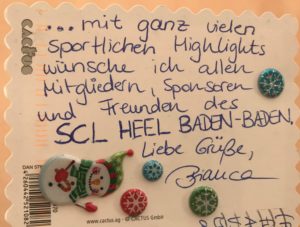 cactus
... mit ganz vielen
sportlichen Highlights
wünsche ich allen
Mitgliedern, Sponsoren
und Freunden des
SCL HEEL BADEN-BADEN.
Liebe Grüße,
Bianca
www.cactus.ag © CACTUS GmbH